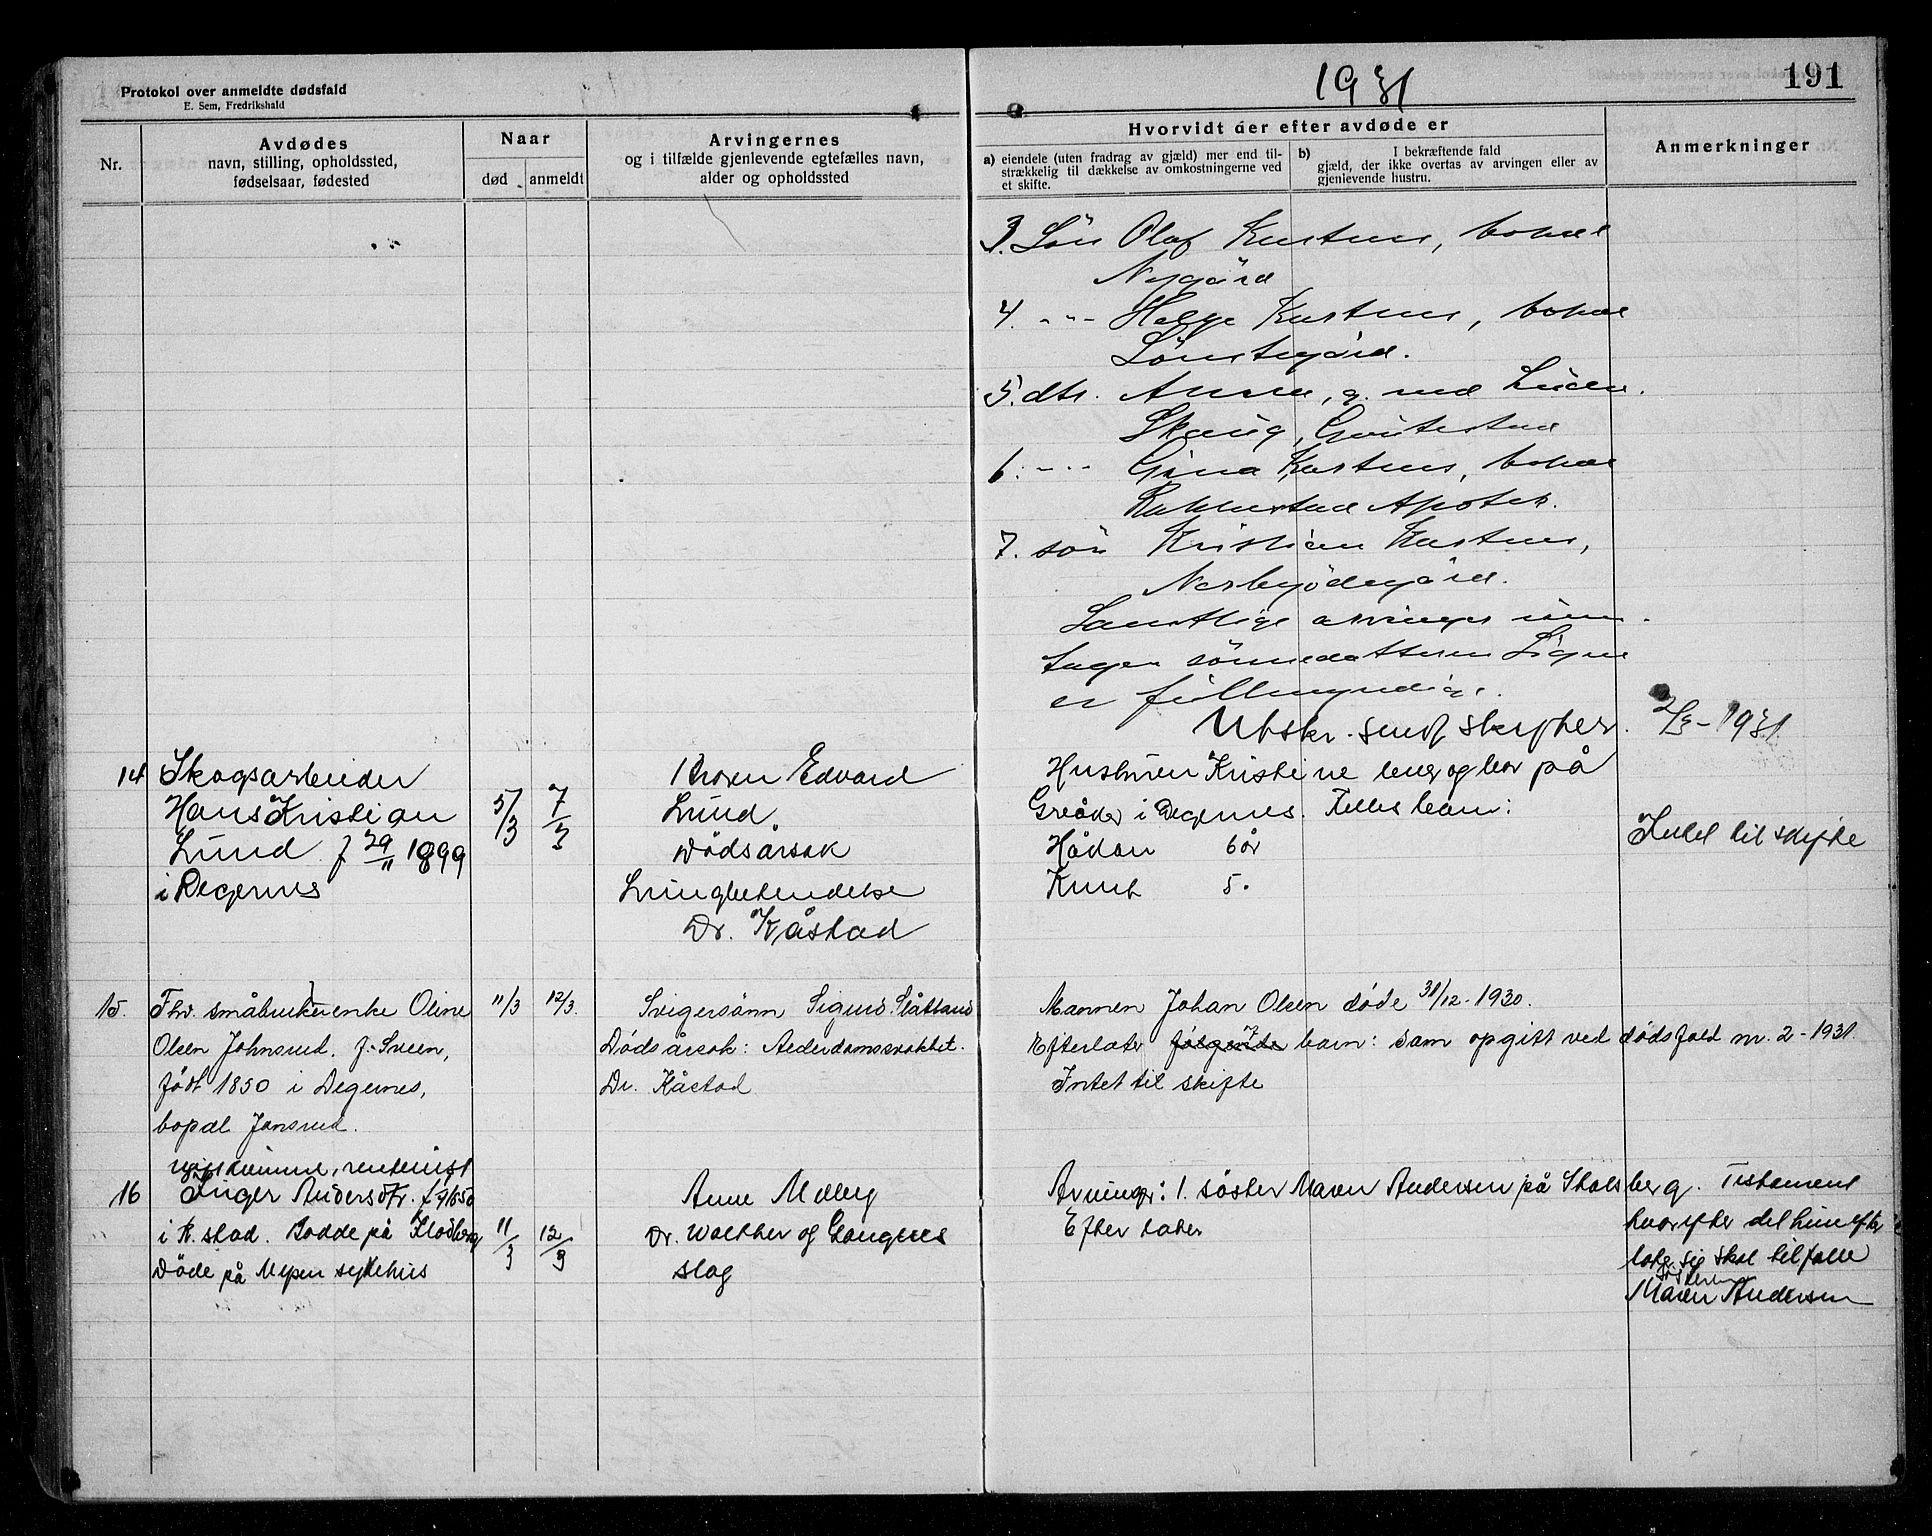 Protokol over anmeldte dødsfald
E. Sem, Fredrikshald
1931
191
Nr.
Avdødes
navn, stilling, opholdssted,
fødselsaar, fødested
Naar
død
anmeldt
Arvingernes
og i tilfælde gjenlevende egtefælles navn,
alder og opholdssted
Hvorvidt der efter avdøde er
a) eiendele (uten fradrag av gjæld) mer end til-
strækkelig til dækkelse av omkostningerne ved
et skifte.
b) I bekræftende fald
gjæld, der ikke overtas av arvingen eller av
gjenlevende hustru.
Anmerkninger
3. Sön Olaf Karstens, bopæl
Nygård
4. -"- Helge Karstens, bopæl
5. dtr. Anna, g. med
Skaug,
6. -"- Gina Karstens, bopæl
Rakkestad Apotek.
7. sön Kristian Karstens,
Samtlige arvinger unn-
tagen sönnedatteren Signe
er fullmyndige.
Utskr. sendt skrifter. 2/3-1931
14
Skogsarbeider
Hans Kristian
Lund f 29/11 1899
i Degernes
5/3
7/3
Broren Edvard
Lund
Dødsårsak
Lungbetendelse
Dr. Kåstad
Hustruen Kristine lever og bor på
i Degernes. Felles barn:
Håkon 6 år
Knut 5.
Intet til skifte
15.
Fhv. småbrukerenke Oline
Olsen Johnsrud. f. Sveen,
født 1850 i Degernes,
bopæl Jonsrud.
11/3
12/3.
Svigersønn Sigurd Slåttland
Dödsårsak: Alderdomssvakhet.
Dr. Kåstad
Mannen Johan Olsen døde 31/12-1930.
Efterlater følgende 7 barn: som opgitt ved dødsfald nr. 2-1931.
Intet til skifte
16
ugift kvinne, rentenist
Inger Andersdtr. f.
i R.stad. Bodde på
Døde på Mysen sykehus
11/3
12/3
Anne Moberg
Dr. Walther og
slag
Arvinger: 1. söster Maren Andersen på Skolsberg.
Efter later
Testament
hvorefter det hun efter
later sig skal tilfalle
søsteren
Maren Andersen